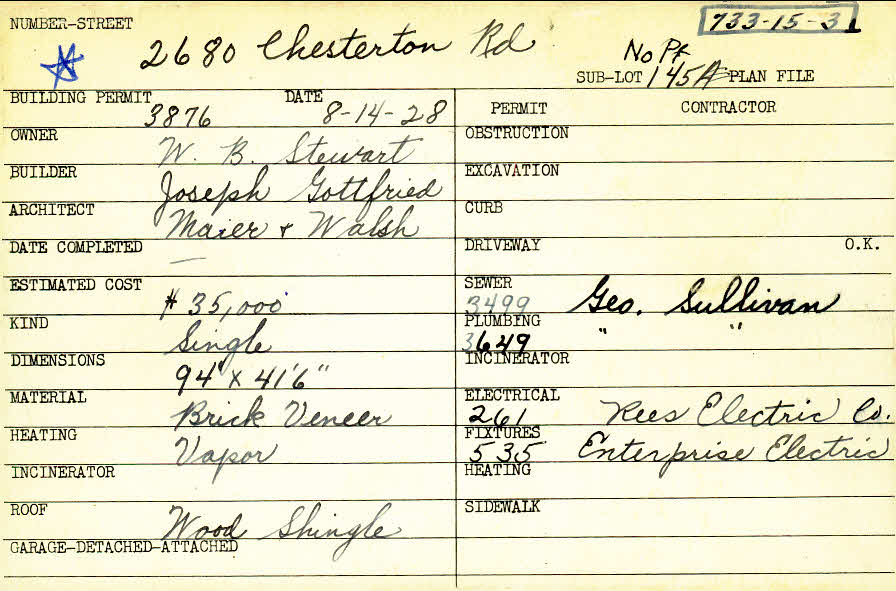 NUMBER-STREET
2680 Chesterton Rd
733-15-31
No Pt
SUB-LOT 145A PLAN FILE
BUILDING PERMIT 3876 DATE 8-14-28
OWNER W. B. Stewart
BUILDER Joseph Gottfried
ARCHITECT Maier & Walsh
DATE COMPLETED —
ESTIMATED COST $ 35,000
KIND Single
DIMENSIONS 94' x 41'6"
MATERIAL Brick Veneer
HEATING Vapor
INCINERATOR
ROOF Wood Shingle
GARAGE-DETACHED-ATTACHED
PERMIT CONTRACTOR
OBSTRUCTION
EXCAVATION
CURB
DRIVEWAY O.K.
SEWER 3499 Geo. Sullivan
PLUMBING 3649 " "
INCINERATOR
ELECTRICAL 261 Rees Electric Co.
FIXTURES 535 Enterprise Electric
HEATING
SIDEWALK